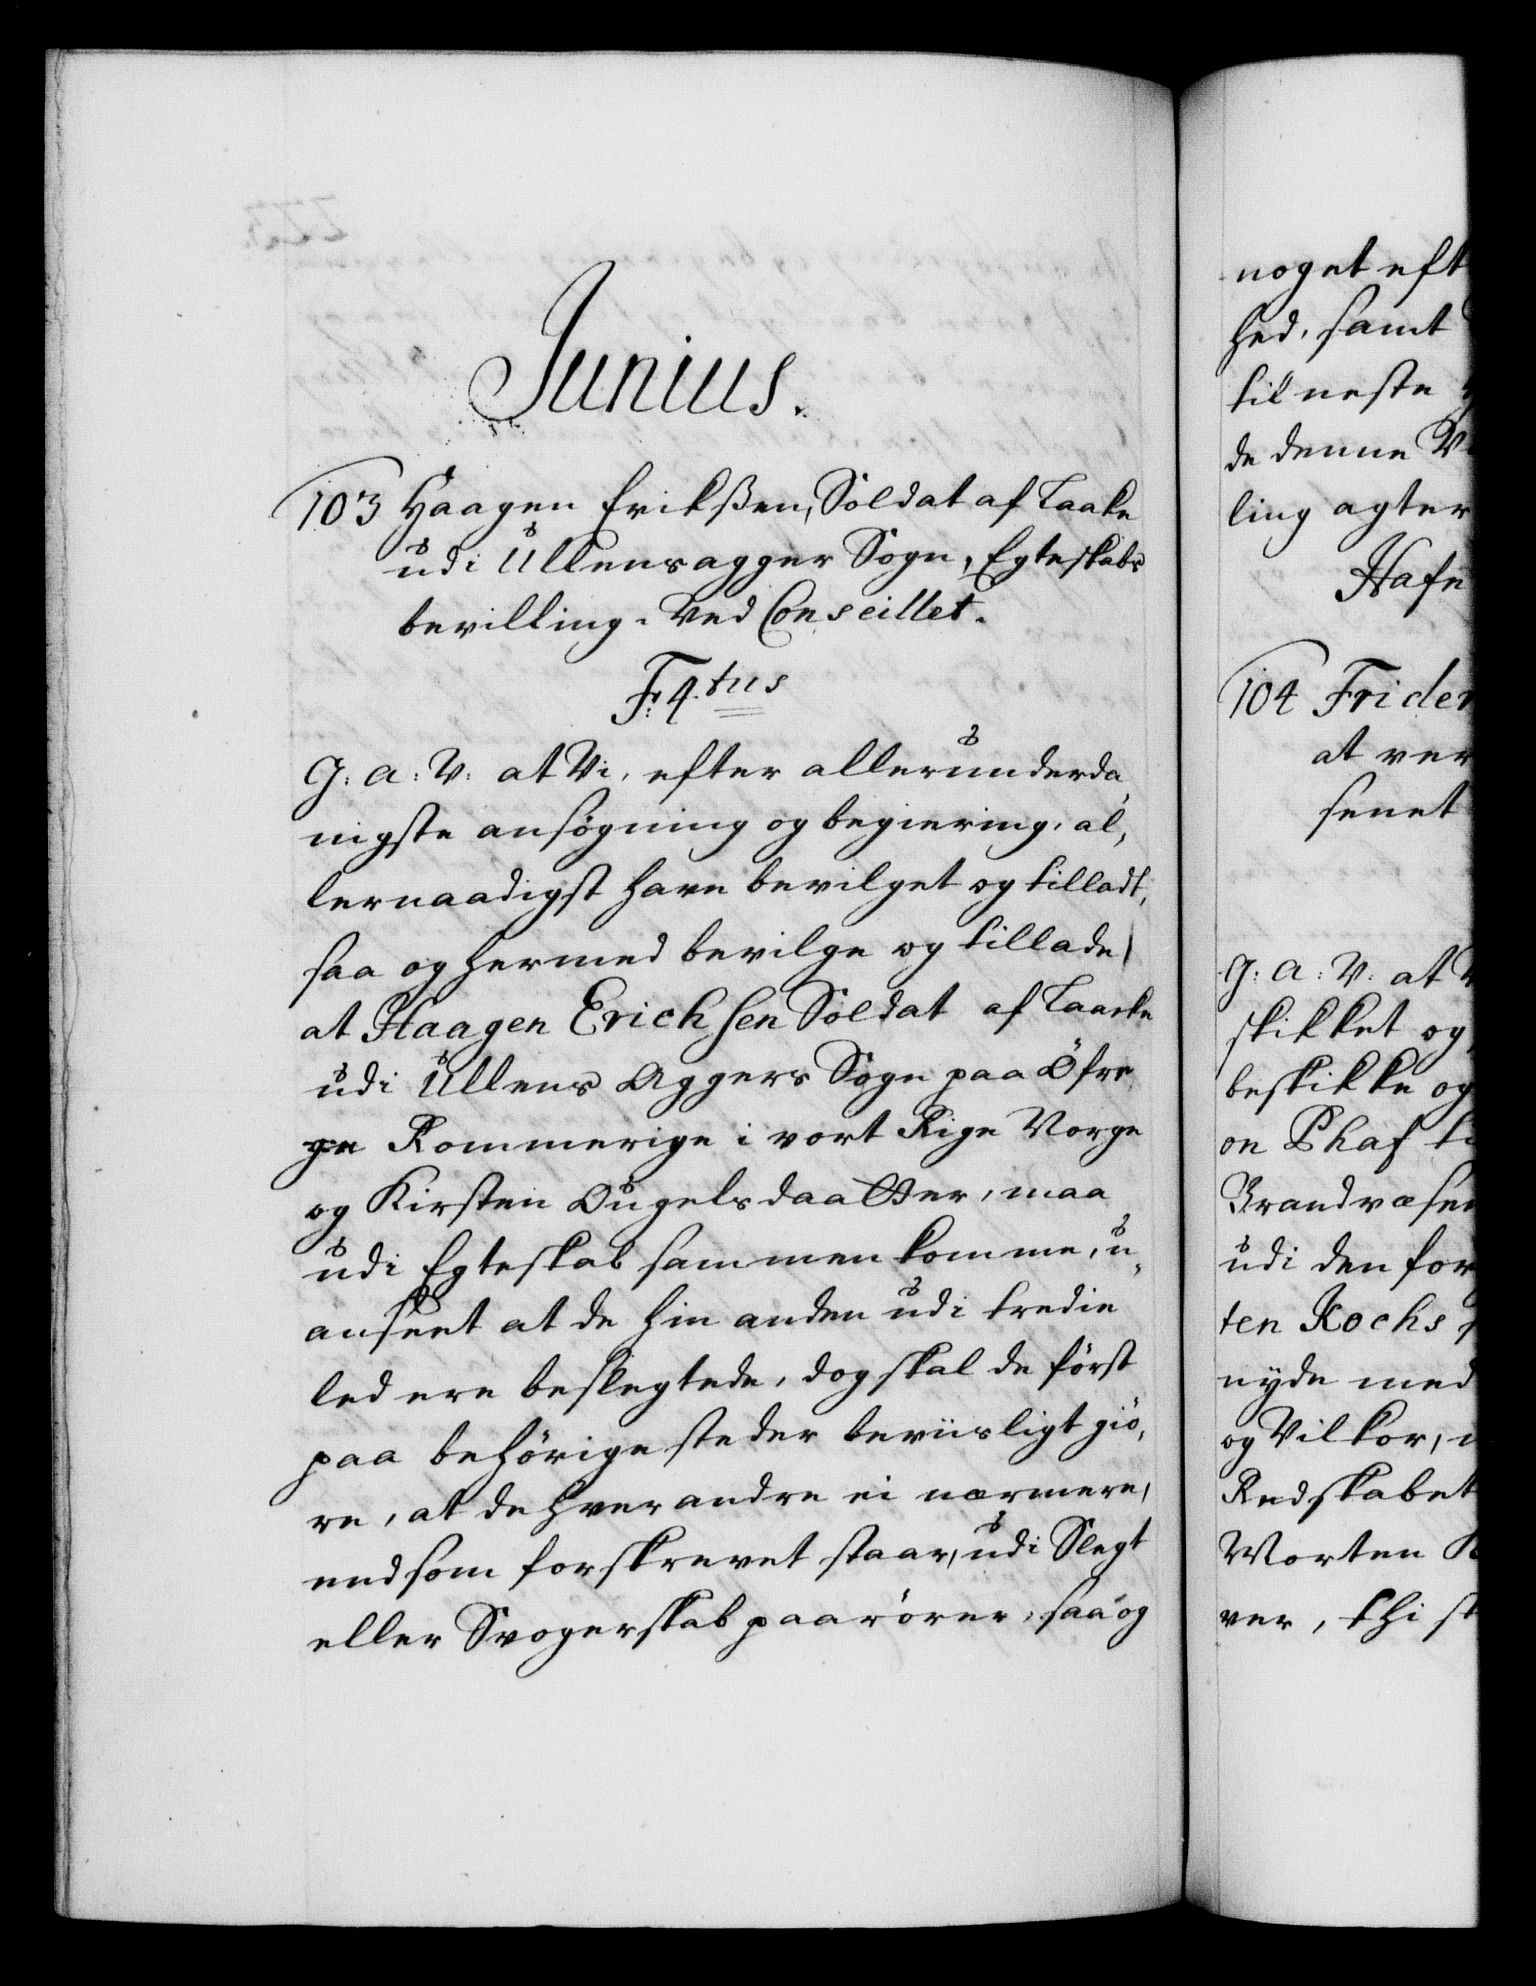 Junius.
103 Haagen Erikßen, Soldat af Taake
udi Ullensagger Sogn, Egteskabs
bevilling. Ved Conseillet.
F: 4.tus
G: A: V: at Vi, efter allerunderda,
nigste ansøgning og begiering, al,
lernaadigst have bevilget og tilladt,
saa og hermed bevilge og tillade,
at Haagen Erichsen Soldat af Taacke
udi Ullens Aggers Sogn paa Öfre
ge Rommerige i vort Rige Norge
og Kirsten Engelsdaatter, maa
udi Egteskab sammen komme, u,,
anseet at de hin anden udi tredie
led ere beslegtede, dog skal de först
paa behörige steder beviisligt giö,
re, at de hver andre ei nærmere,
end som forskrevet staar, udi Slegt
eller Svogerskab paarörer, saa og
noget eft
hed, samt
til neste
de denne
ling agter
Hafn
104 Frider
at ver
senet
G: A: V: at
skikket og
beskikke og
on Phaf
Brandvæsen
udi den for
ten Kochs
nyde med
og Vilkor,
Redskabet
Morten
ver, thi